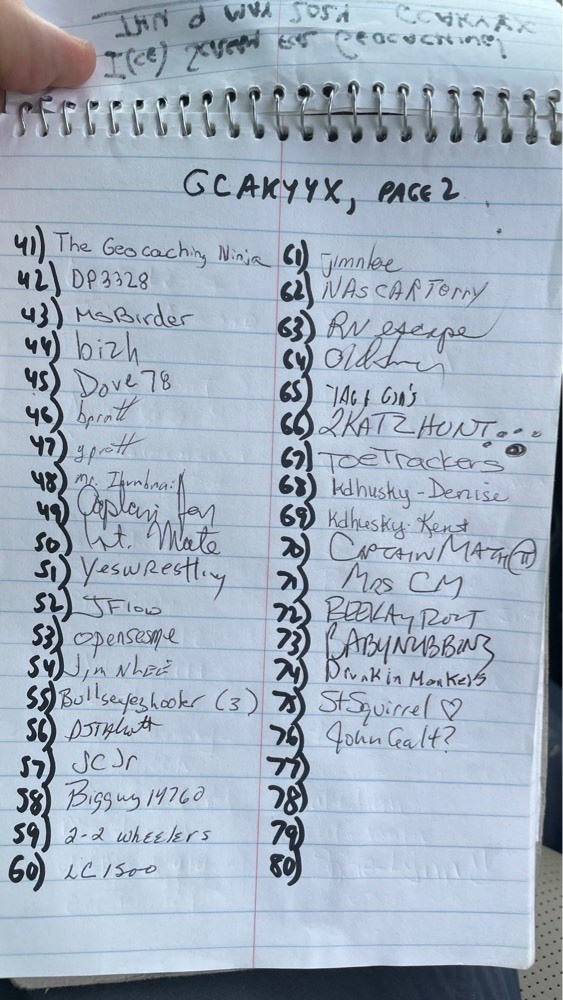 GCAKYYX, PAGE 2
41) The Geocaching Ninja
42) DP3328
43) MsBirder
44) bizh
45) Dove 78
46) bpratt
47) gpratt
48) mr. Thumbnail
49) Captain Jon
50) 1st. Mate
51) Yeswrestling
52) JFlow
53) opensesme
54) Jim NLEE
55) Bullseyeshooter (3)
56)
57) JCJr
58) Bigguy14760
59) 2-2 wheelers
60) LC1500
61) jimnlee
62) NASCARTerry
63) RN escape
64)
65)
66) 2KATZHUNT...
67) ToeTrackers
68) kdhusky-Denise
69) kdhusky-Kent
70) CAPTAIN MATH
71) MRS CM
72)
73) BABYNUBBINZ
74) Drunkin Monkeys
75) StSquirrel ♡
76) John Gealt?
77)
78)
79)
80)